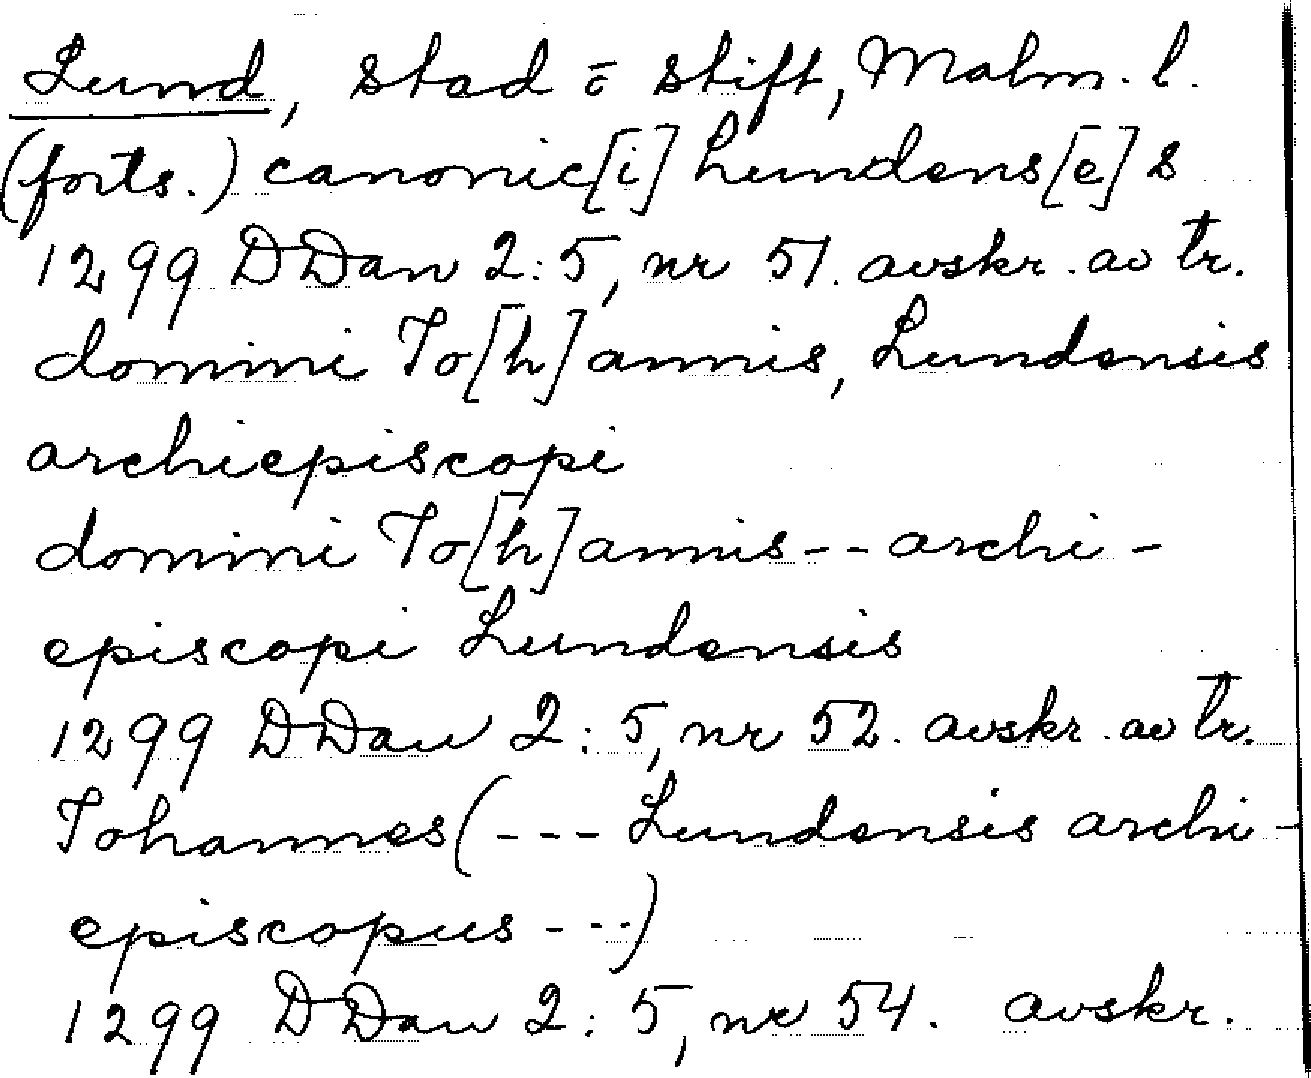 Lund, stad o stift, Malm. l.
(forts.) canonic[i] Lundens[e]s
1299 DDan 2:5, nr 51. avskr. av tr.
domini Jo[h]annis, Lundensis
archiepiscopi
domini Jo[h]annis -- archi-
episcopi Lundensis
1299 DDan 2:5, nr 52. avskr. av tr.
Johannes (--- Lundensis archi-
episcopus ---)
1299 DDan 2:5, nr 54. avskr.